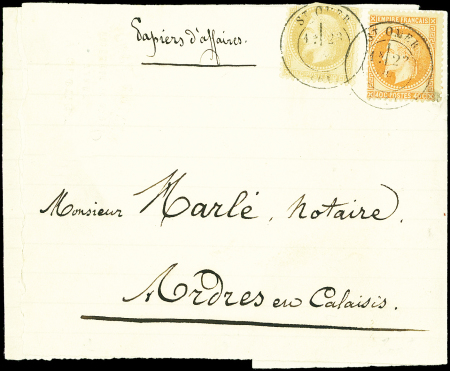 Papiers d'affaires.
ST OMER
ST OMER
EMPIRE FRANÇAIS
Monsieur Marlé, Notaire.
Ardres en Calaisis.